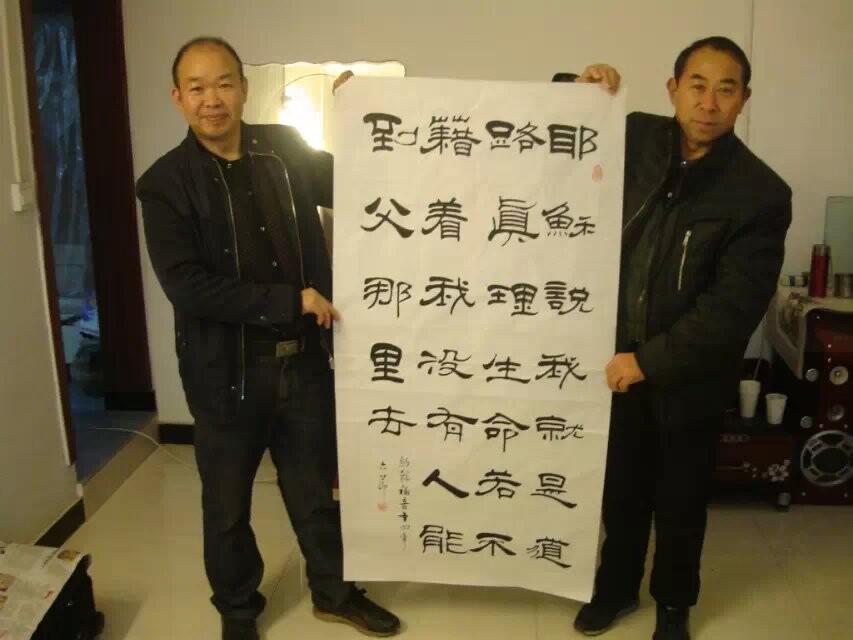 耶穌説我就是道
路眞理生命若不
籍着我没有人能
到父那里去
約翰福音十四章
六節